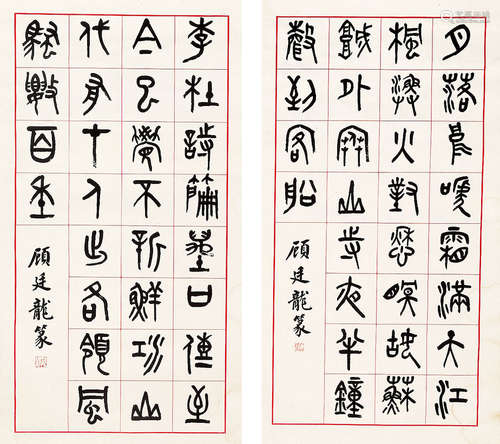 月落烏啼霜滿天江
楓漁火對愁眠姑蘇
城外寒山寺夜半鐘
聲到客船
顧廷龍篆
李杜詩篇萬口傳至
今已覺不新鮮江山
代有才人出各領風
騷數百年
顧廷龍篆